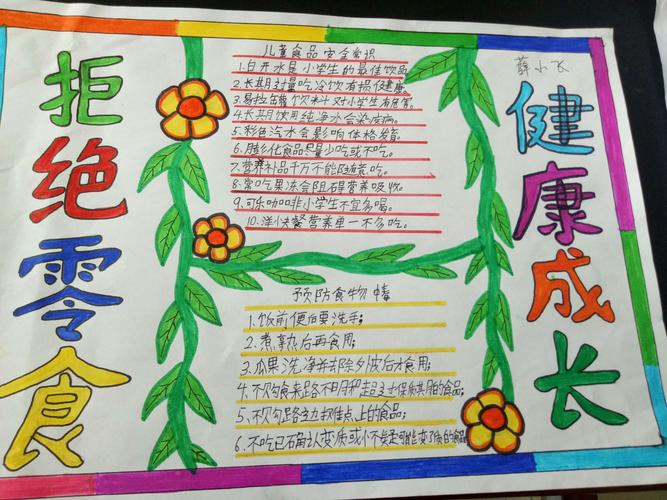 拒绝零食
儿童食品安全常识
1.白开水是小学生的最佳饮品
2.长期过量吃冷饮有损健康。
3.易拉罐饮料对小学生有危害。
4.长期饮用纯净水会染疾病。
5.彩色汽水会影响体格发育。
6.膨化食品尽量少吃或不吃。
7.营养补品千万不能随意吃。
8.常吃果冻会阻碍营养吸收。
9.可乐咖啡小学生不宜多喝。
10.洋快餐营养单一不多吃。
预防食物
1.饭前便后要洗手;
2.煮熟后再食用;
3.瓜果洗净并却除外皮后才食用;
4.不购食来路不明和超过保质期的食品;
5.不购路边摊点上的食品;
6.不吃已确认变质或怀疑可能变了质的食品
薛小飞
健康成长